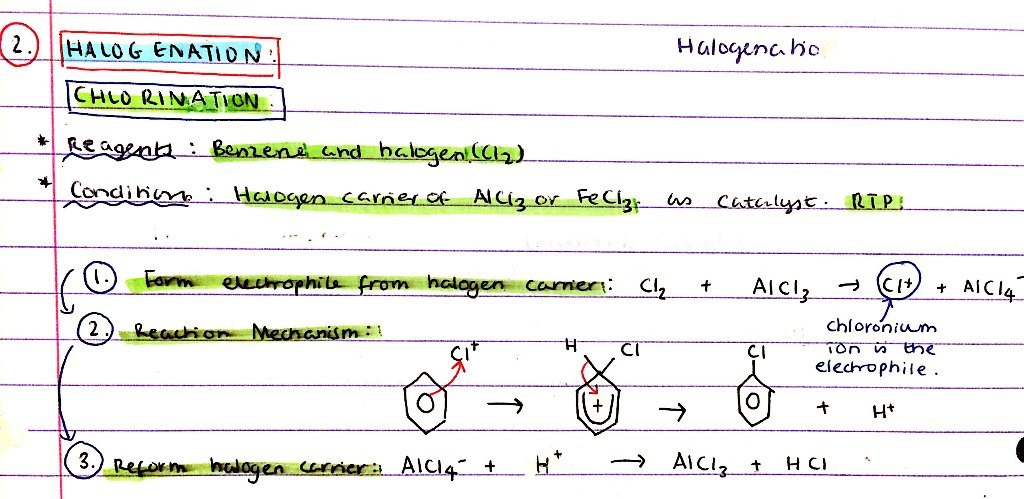 2. HALOGENATION: Halogenatio
CHLORINATION.
* Reagents : Benzene and halogen (Cl₂)
* Conditions : Halogen carrier of AlCl₃ or FeCl₃, as catalyst. RTP.
1. Form electrophile from halogen carrier: Cl₂ + AlCl₃ → Cl+ + AlCl₄⁻
2. Reaction Mechanism:
chloronium
ion is the
electrophile.
Cl⁺ H Cl Cl
→ + → + H⁺
3. Reform halogen carrier: AlCl₄⁻ + H⁺ → AlCl₃ + HCl